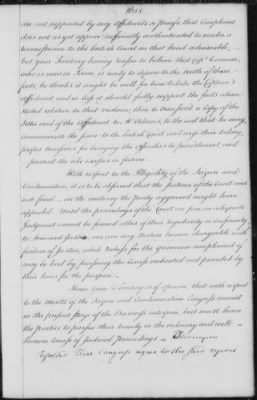 are not supported by any Affidavits or proofs that Complaint
does not as yet appear sufficiently authenticated to render a
remonstrance to the british Court on that head adviseable,
but your Secretary having reason to believe that Capt.
who is now in Town, is ready to depose to the truth of those
facts, he thinks it might be well for him to take the Captain's
Affidavit, and in Case it should fully support the facts above
stated relative to that violence, then to transmit a Copy of the
Letter and of the Affidavit to Mr Adams, to the end that he may
communicate the same to the british Court and urge their taking
proper measures for bringing the offenders to punishment, and
prevent the like outrages in future.
With respect to the Illegality of the Seizure and
Condemnation, it is to be observed that the Sentence of the Court was
not final on the contrary the party aggrieved might have
appealed. Until the proceedings of the Court in pen
Judgment cannot be formed either of their regularity or conformity
to Law and Justice, nor can any Nation become chargeable with
failure of Justice, which redress for the grievances complained of
may be had by pursuing the Course ordained and provided by
their Laws for the purpose.
Hence your Secretary is of opinion that with respect
to the merits of the Seizure and Condemnation Congress cannot
in the present Stage of the Business interpose but must leave
the parties to pursue their remedy in the ordinary and well
known Course of judicial proceedings
Resolved That Congress agree to the said report